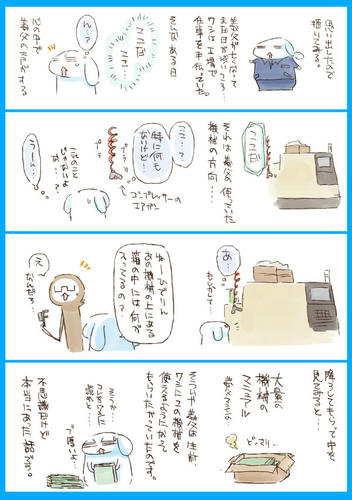 思い出したので
描いてみる。
義父が亡くなって
まだ日が浅いころ
ワシは工場で
仕事を手伝っていた。
そんなある日
ここだ
ここ…
ん…?
心の中で
義父の声がする
ここだ
それは義父の使っていた
機械の方向…
ここ…?
特に何も
ないけど…
プラ
プラ
コンプレッサーの
エアガン
これのこと
じゃないよ
な…?
うーん…
あ…
もしかして…
ねーひでりん
あの機械の上にある
箱の中には何が
入ってるの?
え?
なんだろ…
降ろしてもらって中を
見てみると…
大量の
機械の
マニュアル
義父らしい
どっさり…
そういや義父は生前
ワシにこの機械を
使えるようになって
もらいたがっていたのです。
そうか…
コレをワシに
読めと…
ブ厚いよ…
不思議だけど
本当にあった話です。